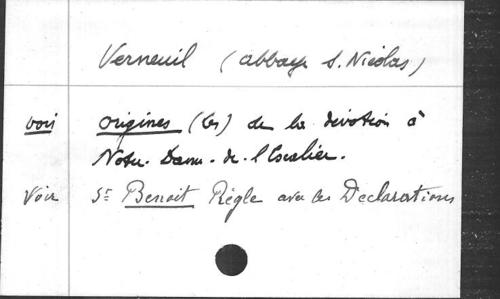 Verneuil (abbaye S. Nicolas)
voir origines (les) de la dévotion à
Notre-Dame-de-l'Escalier.
Voir St Benoit Règle avec les Déclarations